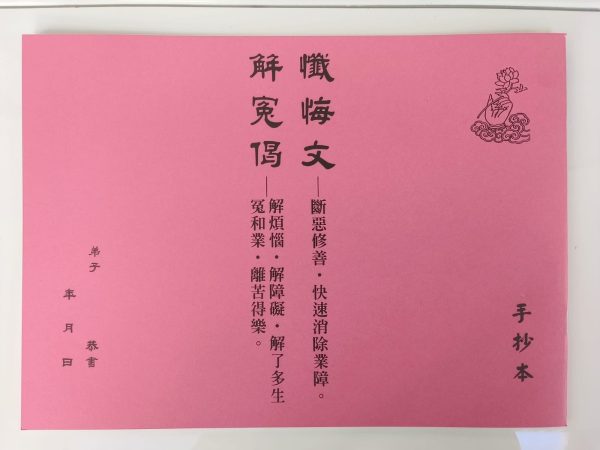 手抄本
懺悔文—斷惡修善·快速消除業障。
解冤偈—解煩惱·解障礙·解了多生
冤和業·離苦得樂。
弟子 恭書
年 月 日